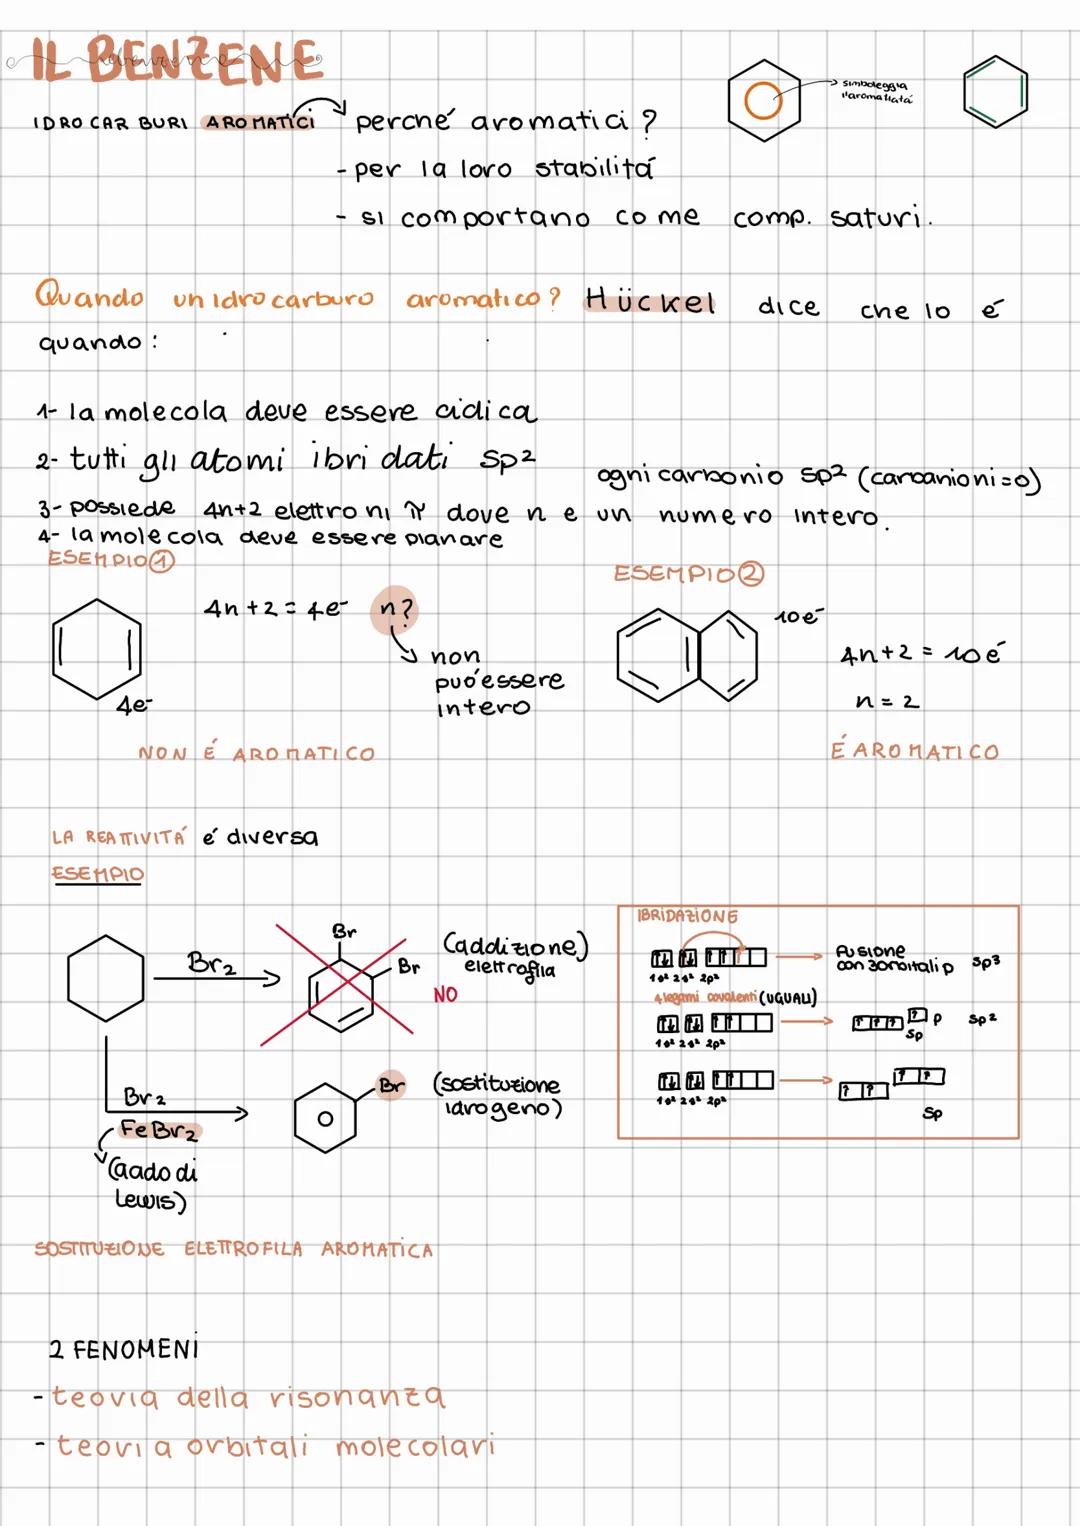 IL BENZENE
IDROCARBURI AROMATICI
perché aromatici?
- per la loro stabilitá
- si comportano come comp. saturi.
simboleggia
l'aromaticitá
Quando un idrocarburo aromatico? Hückel dice che lo é
quando:
1- la molecola deve essere ciclica
2- tutti gli atomi ibridati sp²
ogni carbonio sp² (carbanioni=0)
3- possiede 4n+2 elettroni π dove n e un numero intero.
4- la molecola deve essere planare
ESEMPIO ①
4n+2 = 4e⁻ n?
non
puó essere
intero
4e⁻
NON É AROMATICO
ESEMPIO ②
10e⁻
4n+2 = 10é
n = 2
É AROMATICO
LA REATTIVITÁ é diversa
ESEMPIO
Br₂
Br
Br
(addizione)
elettrofila
NO
Br₂
FeBr₂
(acido di
Lewis)
Br
(sostituzione
idrogeno)
IBRIDAZIONE
1s² 2s² 2p²
fusione
con 3 orbitali p sp3
4 legami covalenti (UGUALI)
1s² 2s² 2p²
p sp2
sp
1s² 2s² 2p²
sp
SOSTITUZIONE ELETTROFILA AROMATICA
2 FENOMENI
- teoria della risonanza
- teoria orbitali molecolari